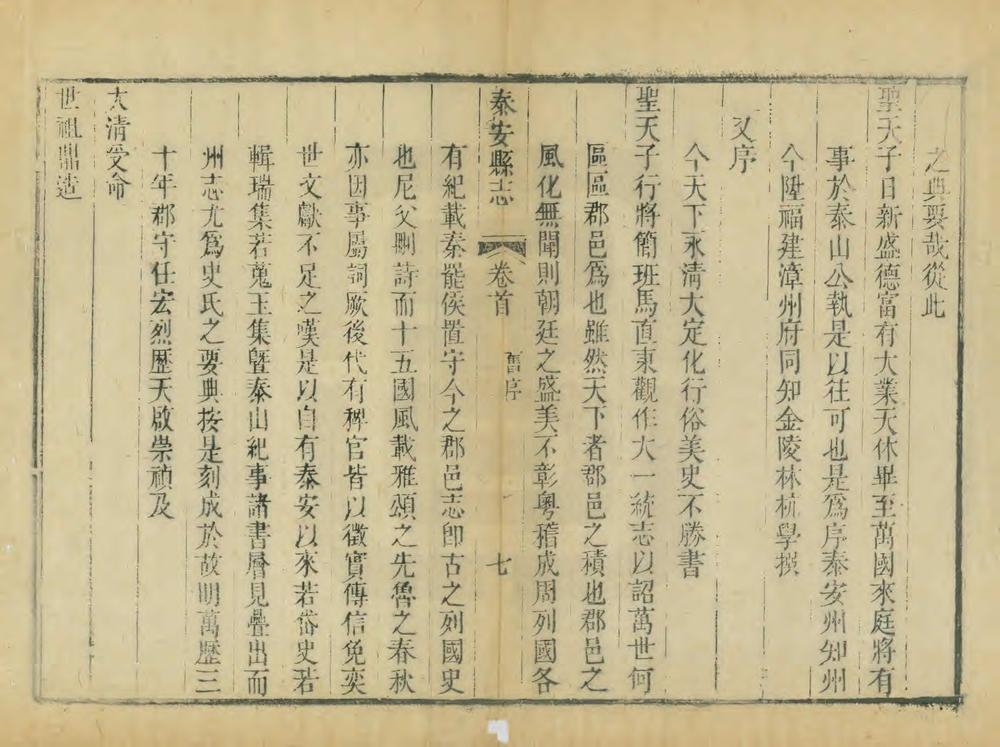 之典要哉從此
聖天子日新盛德富有大業天休畢至萬國來庭將有
事於泰山公執是以往可也是爲序泰安州知州
今陞福建漳州府同知金陵林杭學撰
又序
今天下永清大定化行俗美史不勝書
聖天子行將簡班馬直東觀作大一統志以詔萬世何
區區郡邑爲也雖然天下者郡邑之積也郡邑之
風化無聞則朝廷之盛美不彰粤稽成周列國各
泰安縣志 卷首 舊序 七
有紀載秦罷侯置守今之郡邑志卽古之列國史
也尼父刪詩而十五國風載雅頌之先魯之春秋
亦因事屬詞厥後代有稗官皆以徵實傳信免奕
世文獻不足之嘆是以自有泰安以來若岱史若
輯瑞集若蒐玉集曁泰山紀事諸書層見疊出而
州志尤爲史氏之要典按是刻成於故明萬歷三
十年郡守任宏烈歷天啟崇禎及
大清受命
世祖鼎造